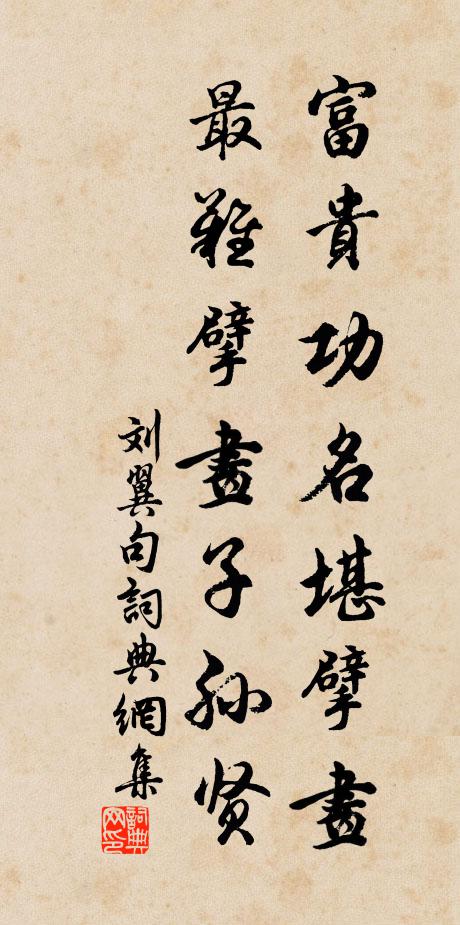 富貴功名堪擘畫
最難擘畫子孙贤
刘翼句詞典網集
詞典网印